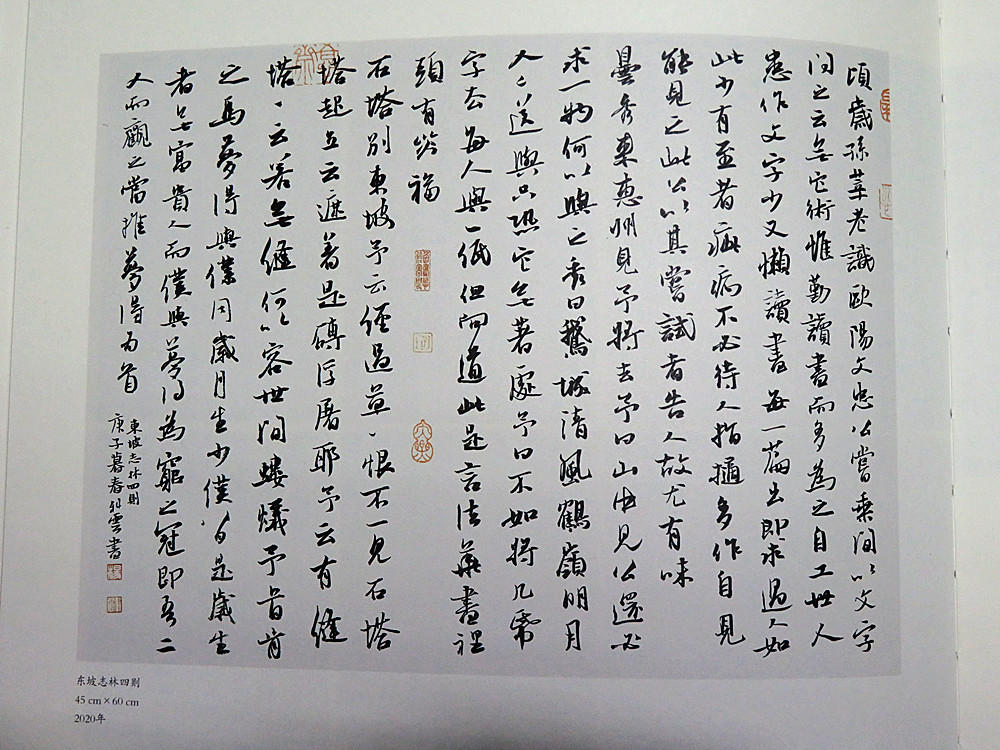 頃歲孫莘老識歐陽文忠公嘗乘间以文字
问之云無它術惟勤讀書而多為之自工世人
患作文字少又懶讀書每一篇出即求過人如
此少有至者疵病不必待人指擿多作自見
能見之此公以其嘗試者告人故尤有味
曇秀來惠州見予將去予曰山中見公還必
求一物何以與之秀曰鵝城清風鶴嶺明月
人々送與只恐它無著處予曰不如將几紙
字去每人與一紙但向道此是言法華書裡
頭有災福
石塔別東坡予云經過草々恨不一見石塔
塔起立云遮著是磚浮屠耶予云有縫
塔々云若無縫何以容世间螻蟻予首肯
之馬夢得與僕同歲月生少僕八日是歲生
者無富貴人而僕與夢得為窮之冠即吾二
人而觀之當推夢得為首
東坡志林四則
庚子暮春雲書
东坡志林四则
45 cm × 60 cm
2020年